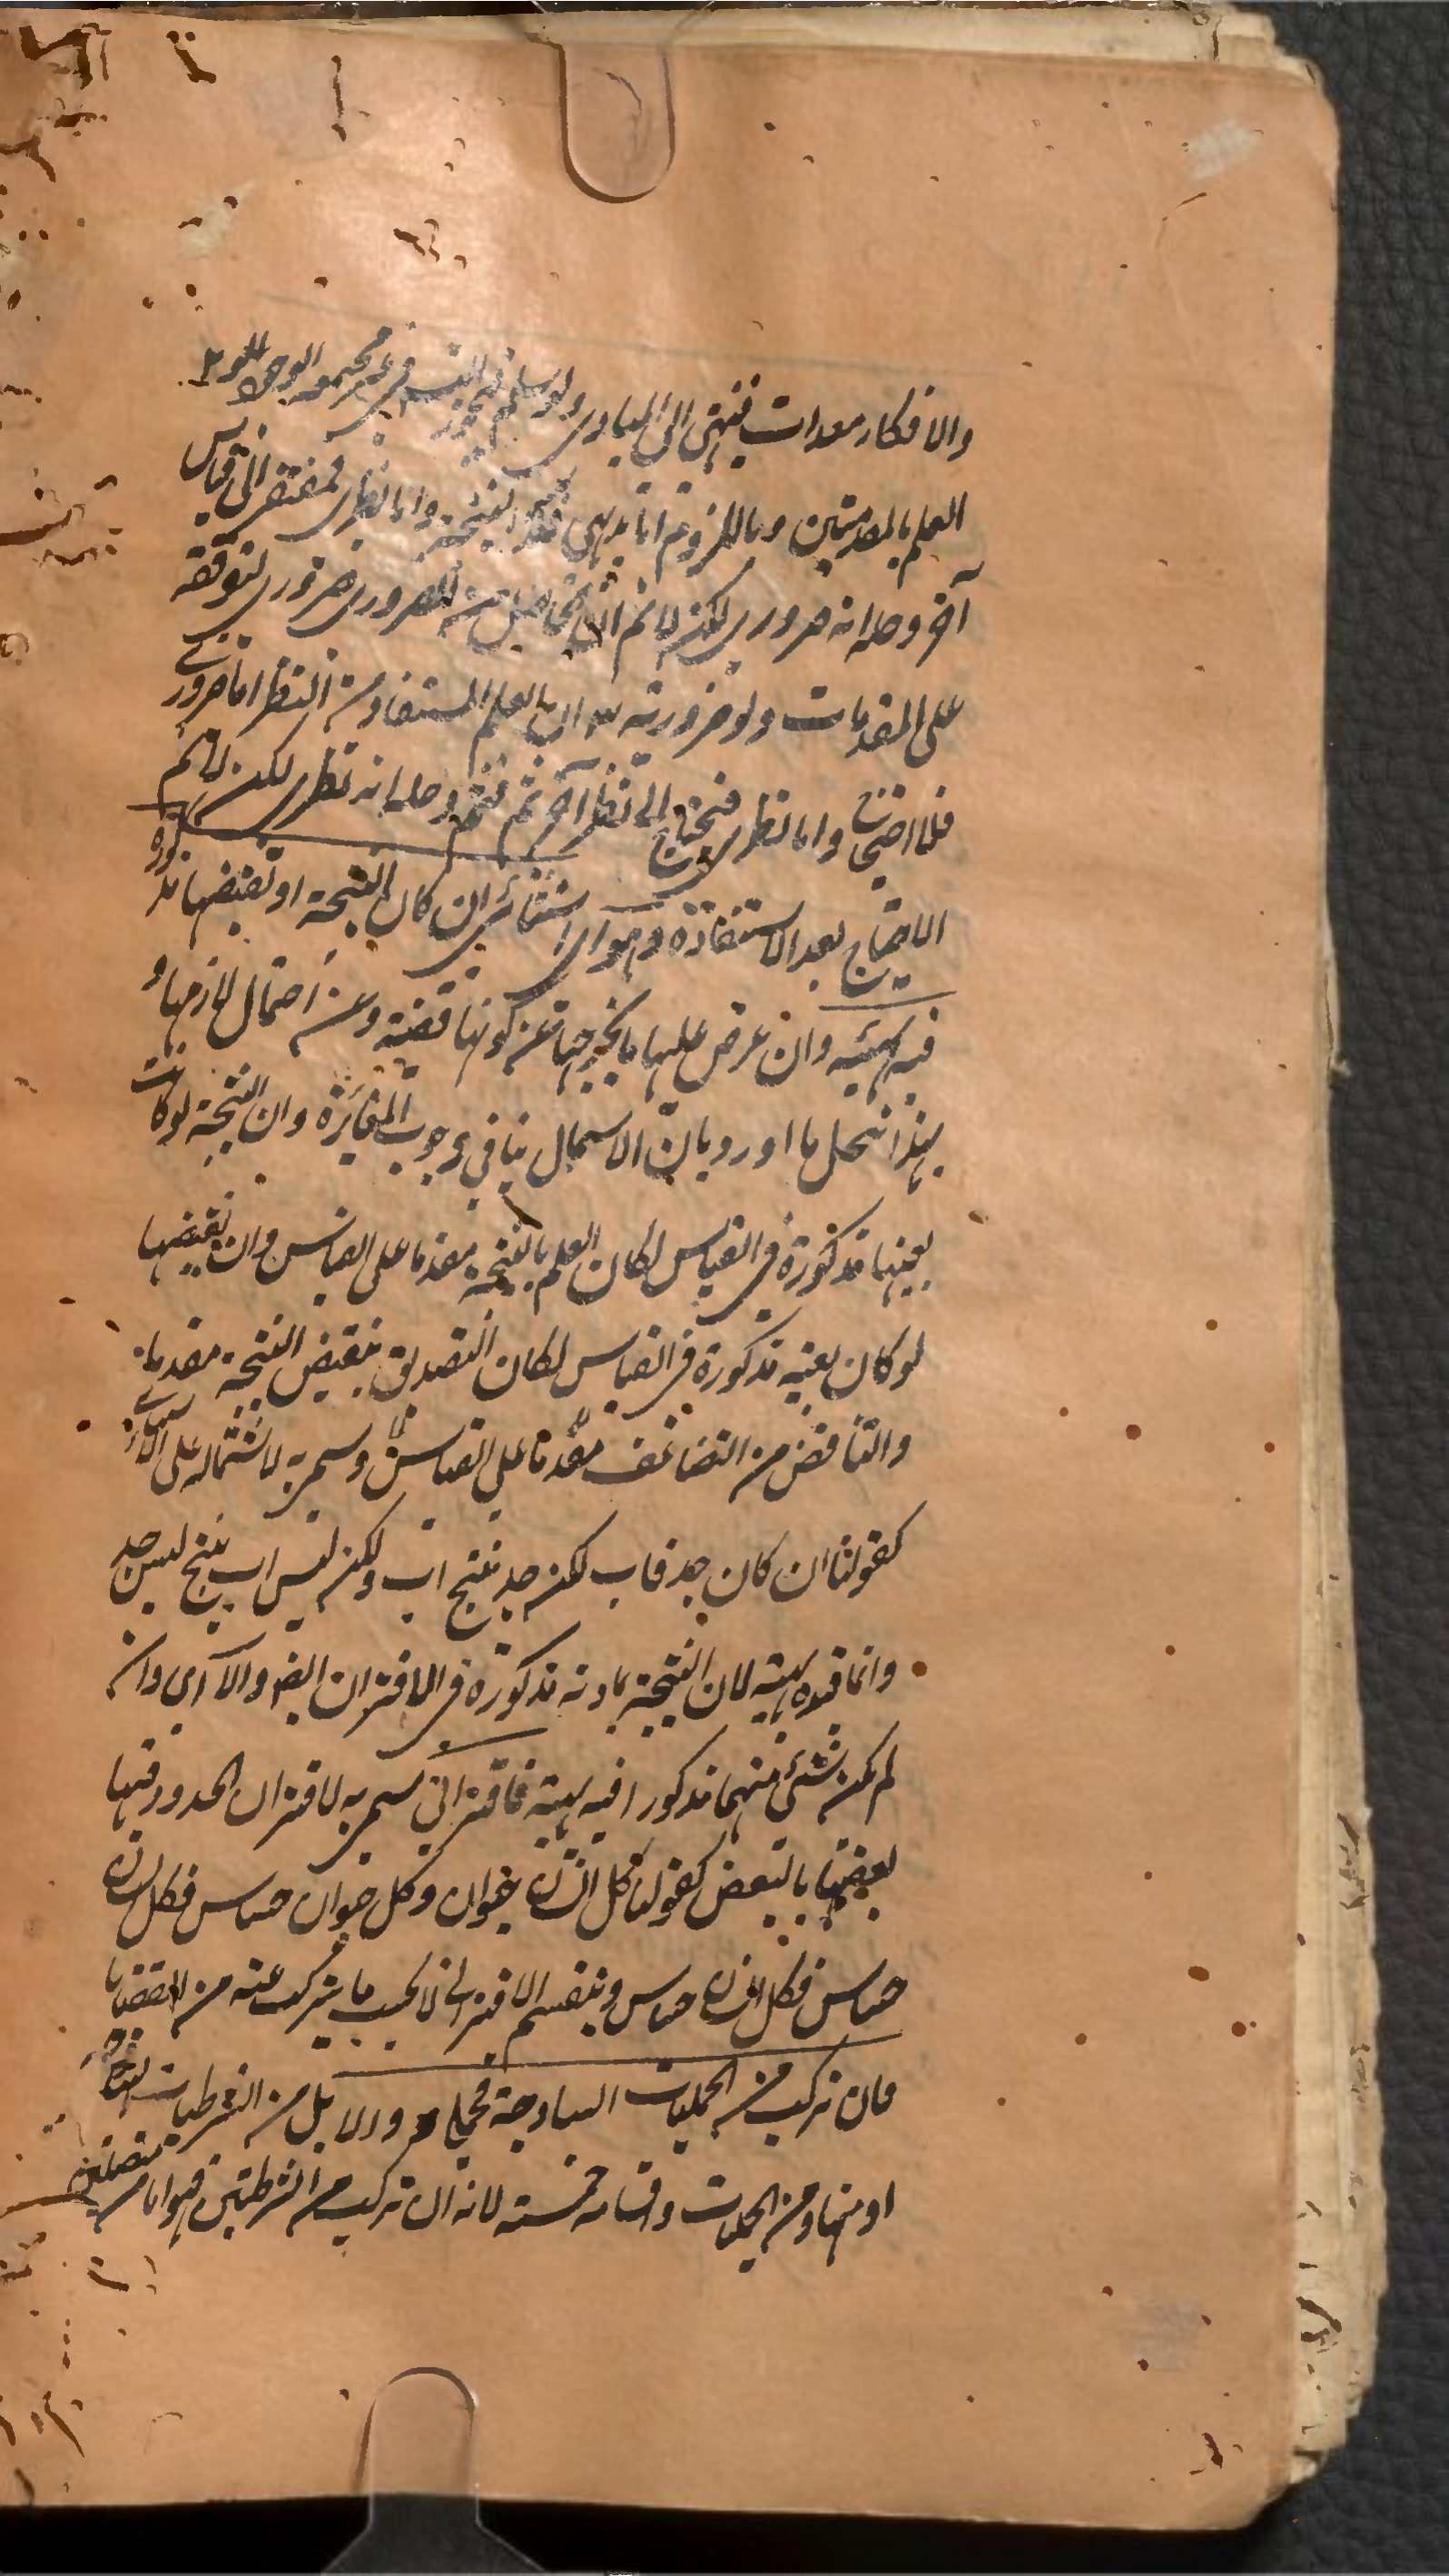 والافكار معدات تنتهى الى المبادى ولو سلم فيجوز التسم فى غير مجتمعه الوجود
العلم بالمقدمتين وباللزوم اما بديهى فكذا النتيجة واما نظرى فمفتقر الى قياس
آخر وحله انه ضرورى لكنه لانم ان الحاصل منه للضرورى ضرورى لتوقفه
على المقدمات ولو ضرورية ان العلم المستفاد من النظر اما ضرورى
فلما احتيج واما نظرى فيحتاج الى نظر آخر ثم وثم وحله انه نظرى لكن لانم
الاحتياج بعد الاستفادة وهو استثنائى ان كان النتيجة او نقيضها مذكورة
فيه بهيئته وان عرض عليها ما يخرجها عن كونها قضية وعن احتمال لازمها و
بهذا انحل ما اورد بان الاشتمال ينافى وجوب المغايرة وان النتيجة لو كانت
بعينها مذكورة فى القياس لكان العلم بالنتيجة مقدما على القياس وان نقيضها
لو كان بعينه مذكورة فى القياس لكان التصديق بنقيض النتيجة مقدما
والتناقض من التضايف مقدما على القياس وسمى به لاشتماله على
كقولنا ان كان جد فاب لكنه جد ينتج اب ولكنه ليس اب ينتج ليس جد
وانما قيده بهيئته لان النتيجة بمادته مذكورة فى الاقتران ايضا والا اى وان
لم يكن شئ منهما مذكورا فيه بهيئته فاقترانى سمى به لاقتران الحدود فيها
بعضها بالبعض كقولنا كل انسان حيوان وكل حيوان حساس فكل انسان
حساس فكل انسان حساس وينقسم الاقترانى لا بحسب ما يتركب عنه من القضايا
فان تركب من الحمليات الساذجة فحملى والا بل من الشرطيات
او منها ومن الحمليات واقسامه خمسة لانه ان تركب من الشرطيتين فهو اما من متصلتين